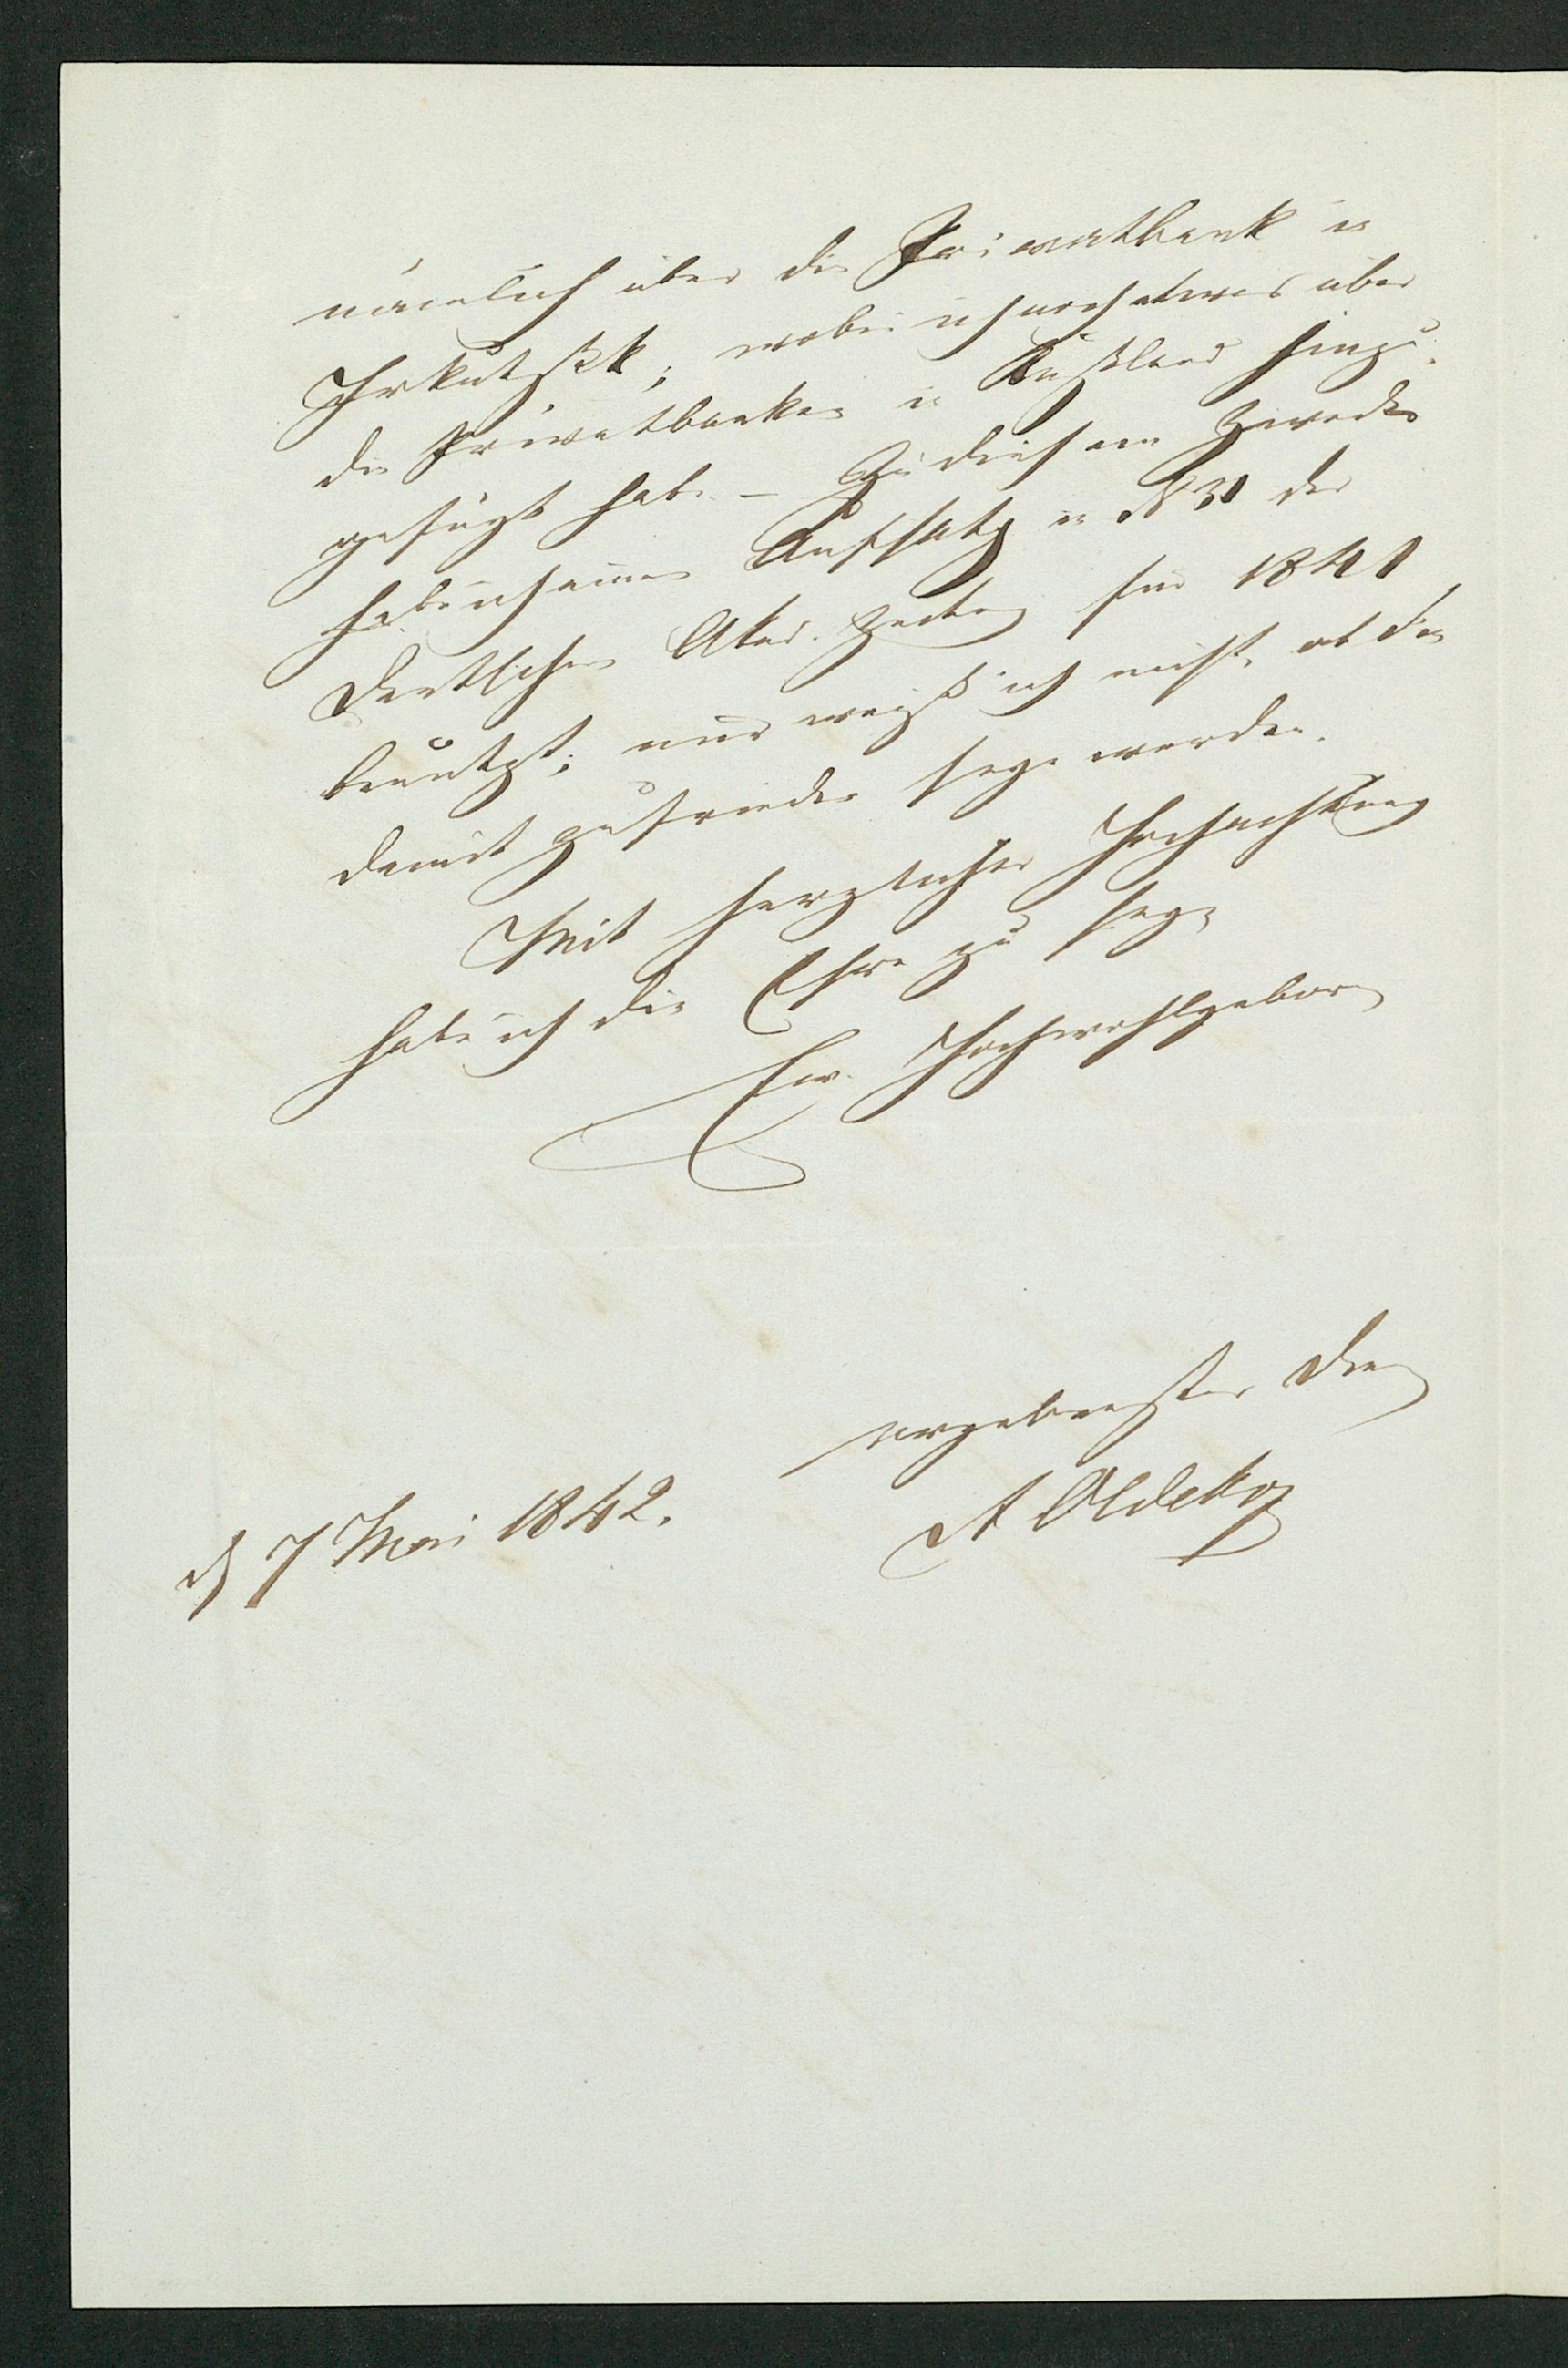 nämlich über die Privatbank in
Irkutzkk; wobei ich noch etwas über
die Privatbanken in Rußland hinzu-
gefügt habe. – Zu diesem Zwecke
habe ich einen Aufsatz in № 31 der
Deutschen Akad. Zeitung für 1841
benutzt; nur weiß ich nicht, ob Sie
damit zufrieden seyn werden.
Mit herzlicher Hochachtung
habe ich die Ehre zu seyn
Ew. Hochwohlgeboren
ergebenster Diener
A Oldekop
d 7 Mai 1842.